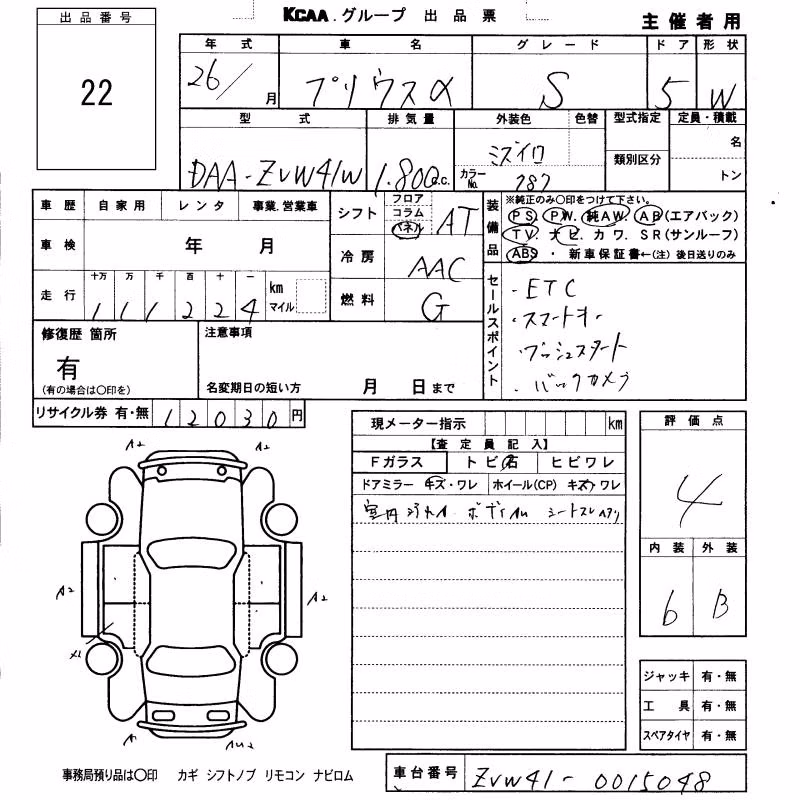 出品番号
22
KCAA.グループ 出品票
主催者用
年式 車名 グレード ドア 形状
26/ 月 プリウスα S 5 W
型式 排気量 外装色 色替 型式指定 定員・積載
DAA-ZVW41W 1.800c.c. ミズイロ 類別区分 名
カラーNo. 787 トン
車歴 自家用 レンタ 事業.営業車
車検 年 月
走行 十万 万 千 百 十 一
1 1 1 2 2 4 km マイル
シフト フロア コラム パネル AT
冷房 AAC
燃料 G
装備品 ※純正のみ〇印をつけて下さい。
PS. PW. 純AW. AB(エアバック)
TV. ナビ. カワ. SR(サンルーフ)
ABS ・ 新車保証書←(注)後日送りのみ
セールスポイント
・ETC
・スマートキー
・プッシュスタート
・バックカメラ
修復歴 箇所
有
(有の場合は〇印を)
注意事項
名変期日の短い方 月 日まで
リサイクル券 有・無 12030円
現メーター指示 km
【査定員記入】
Fガラス トビ石 ヒビワレ
ドアミラー キズ・ワレ ホイール(CP) キズ・ワレ
室内 ボディ シートスレ
評価点
4
内装 外装
6 B
ジャッキ 有・無
工具 有・無
スペアタイヤ 有・無
A2 A2
A2 A2
事務局預り品は〇印 カギ シフトノブ リモコン ナビロム
車台番号 ZVW41-0015048